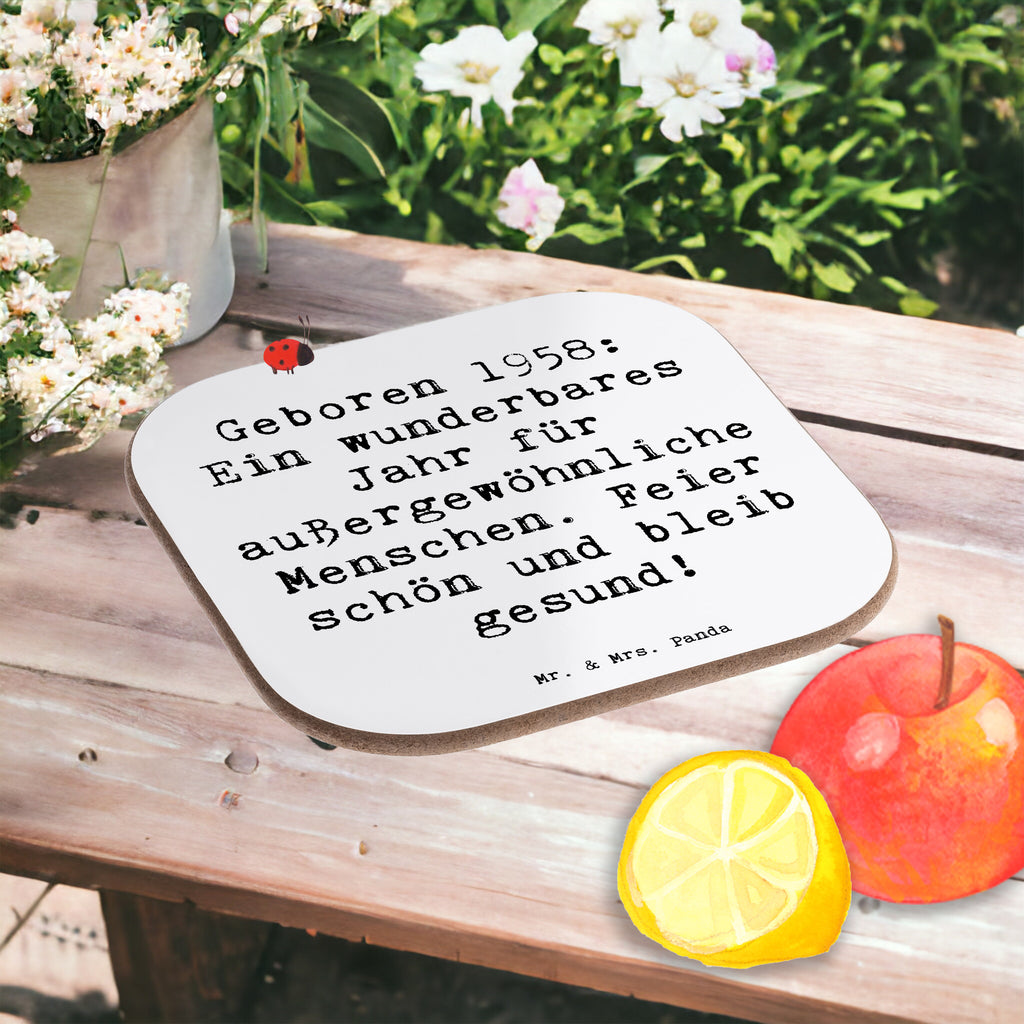 Geboren 1958:
Ein wunderbares
Jahr für
außergewöhnliche
Menschen. Feier
schön und bleib
gesund!
Mr. & Mrs. Panda